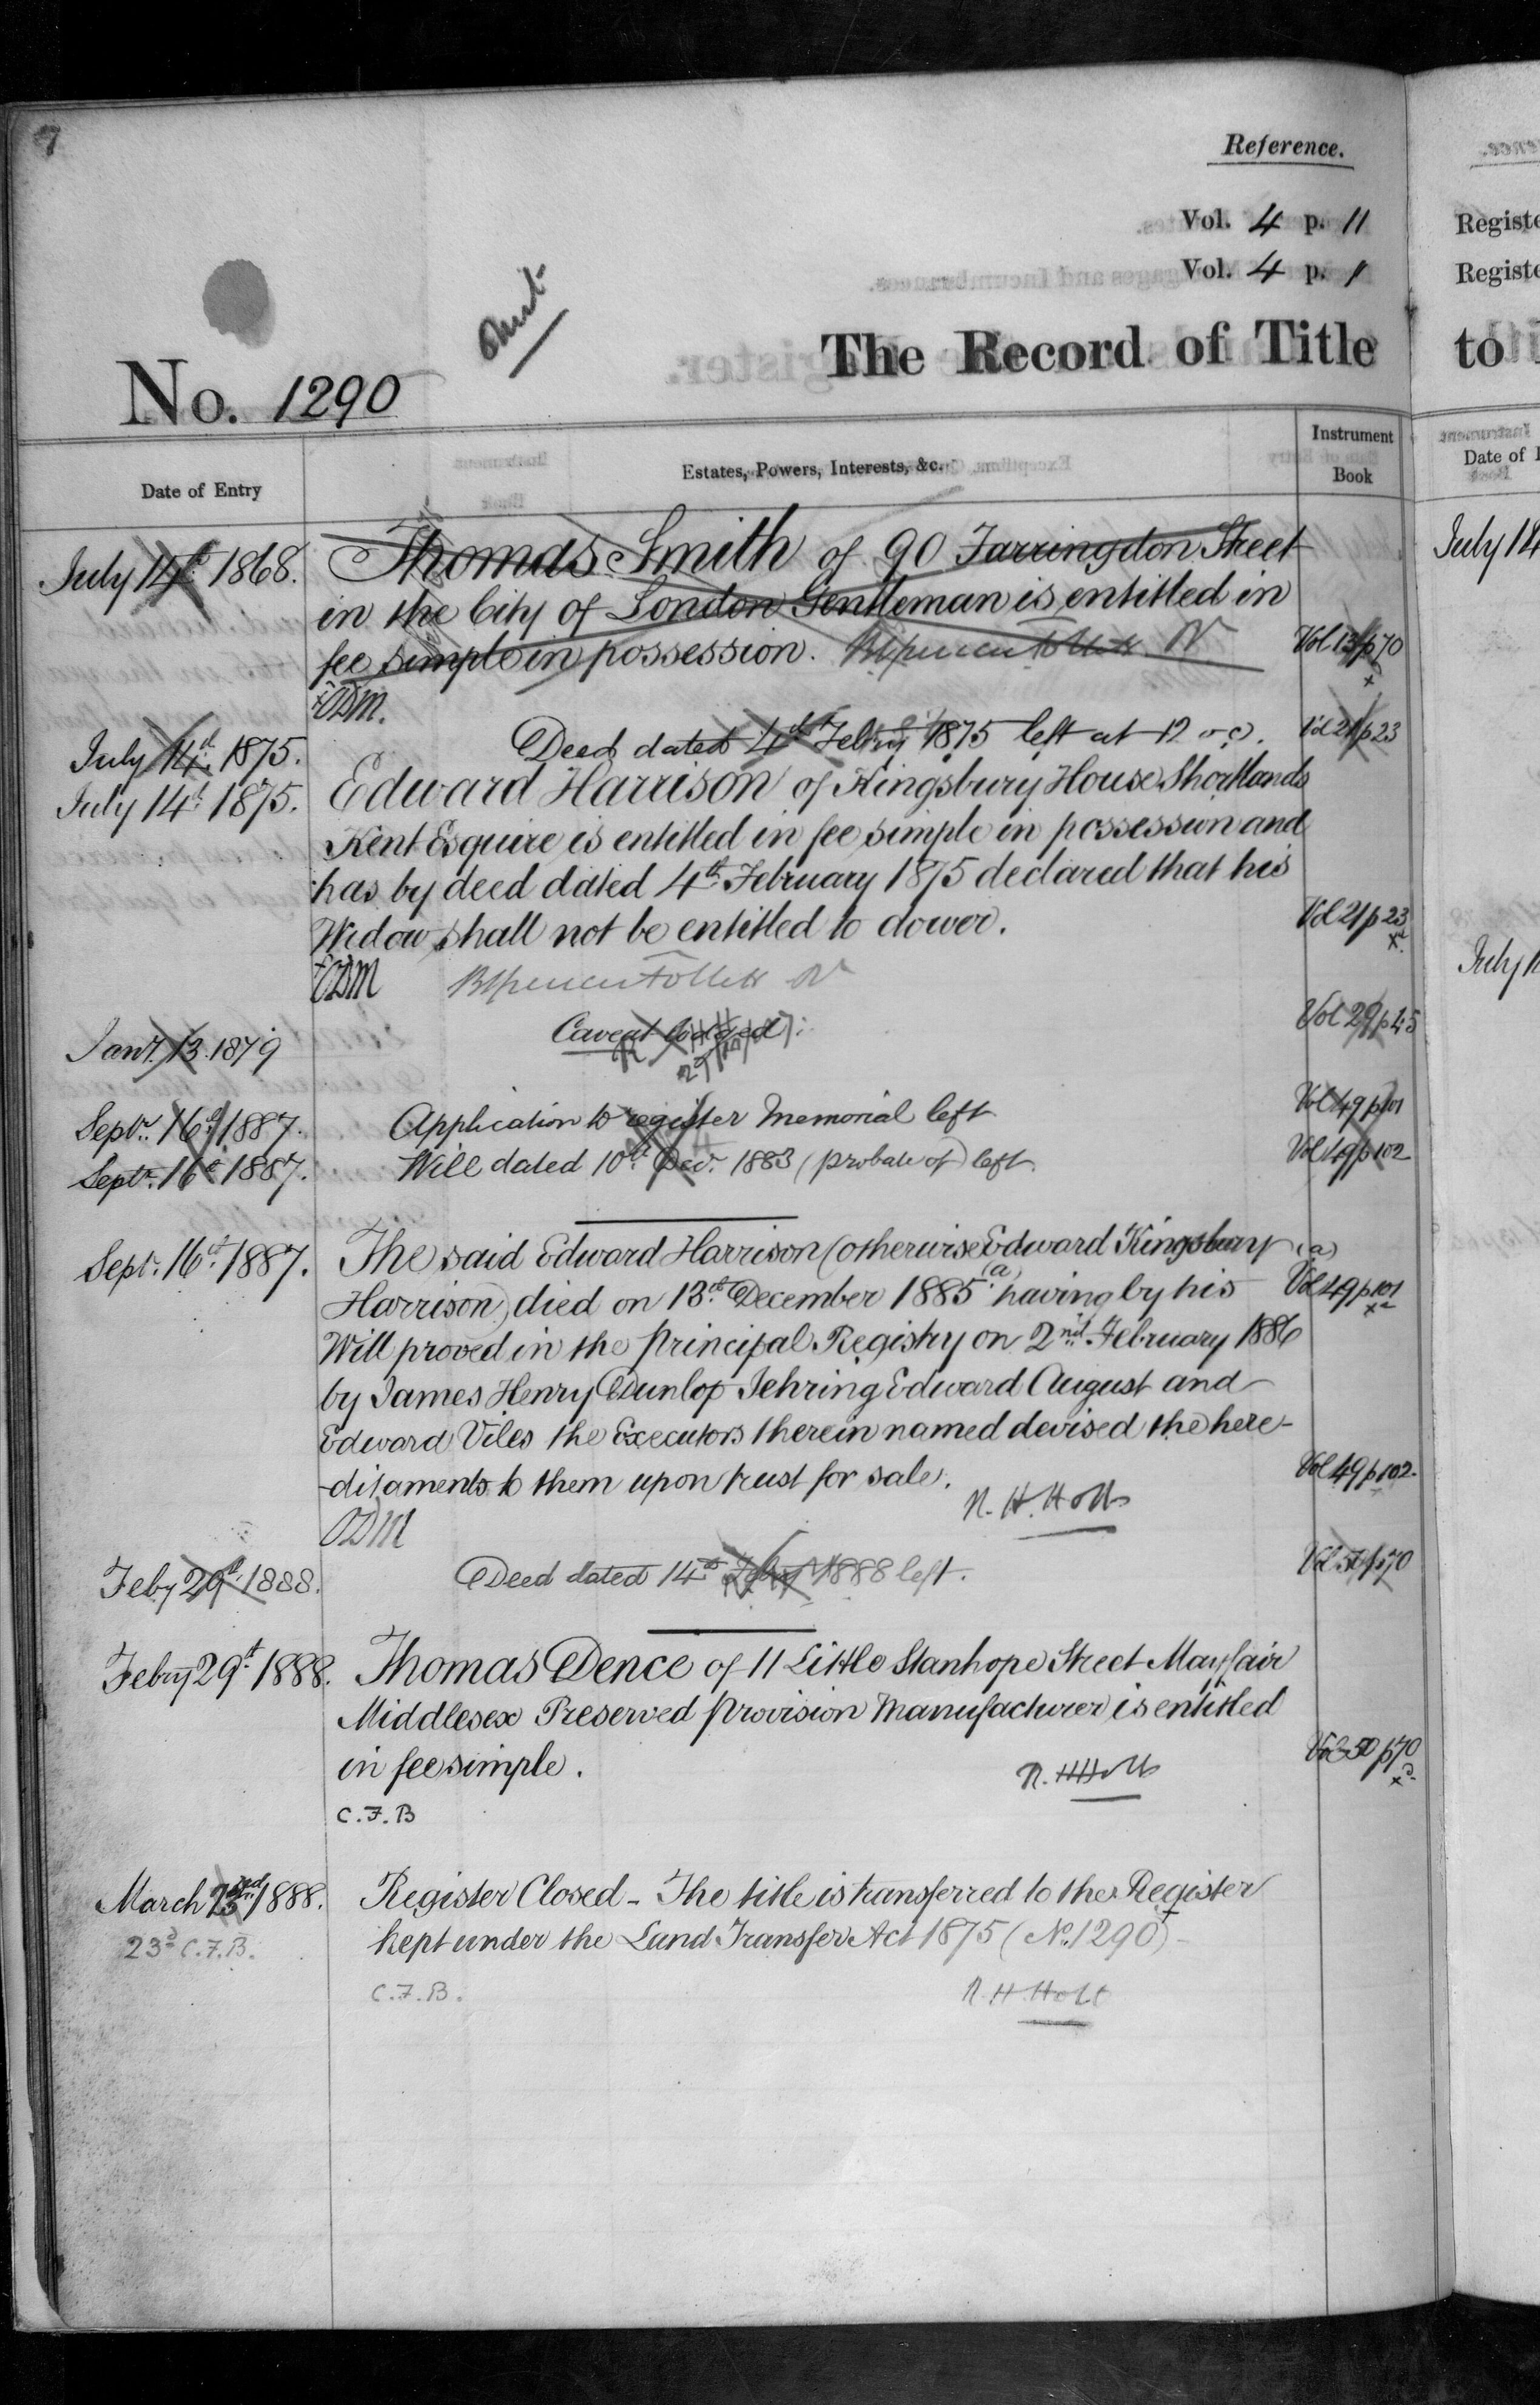 7
Reference.
Vol. 4 p. 11
Vol. 4 p. 1
The Record of Title
No. 1290
Date of Entry
Estates, Powers, Interests, &c.
Instrument
Book
July 14th 1868. Thomas Smith of 90 Farringdon Street
in the City of London Gentleman is entitled in
fee simple in possession. Vol 13 p 70
ODM.
July 14th 1875. Deed dated 4th Febry 1875 left at 12 o c. Vol 21 p 23
July 14th 1875. Edward Harrison of Kingsbury House Shortlands
Kent Esquire is entitled in fee simple in possession and
has by deed dated 4th February 1875 declared that his
Widow shall not be entitled to dower. Vol 21 p 23
ODM
Jany. 13. 1879 Caveat lodged Vol 29 p 45
Septr. 16th 1887. Application to register Memorial left Vol 49 p 101
Septr. 16th 1887. Will dated 10th Decr. 1883 (probate of) left. Vol 49 p 102
Septr. 16th 1887. The said Edward Harrison (otherwise Edward Kingsbury (a)
Harrison) died on 13th December 1885 (a) having by his Vol 49 p 101
Will proved in the Principal Registry on 2nd February 1886
by James Henry Dunlop Jehring Edward August and
Edward Viles the Executors therein named devised the here-
-ditaments to them upon trust for sale. Vol 49 p 102.
R. H. Holt
ODM
Feby 29th 1888. Deed dated 14th Feby 1888 left. Vol 50 p 70
Febry 29th 1888. Thomas Dence of 11 Little Stanhope Street Mayfair
Middlesex Preserved Provision Manufacturer is entitled
in fee simple. R. H. Holt Vol 50 p 70
C.F.B
March 23rd 1888. Register Closed - The title is transferred to the Register
23d C.F.B. kept under the Land Transfer Act 1875 (No. 1290) -
C.F.B. R. H. Holt
Registe
Registe
to
Date of
July 14
July 1